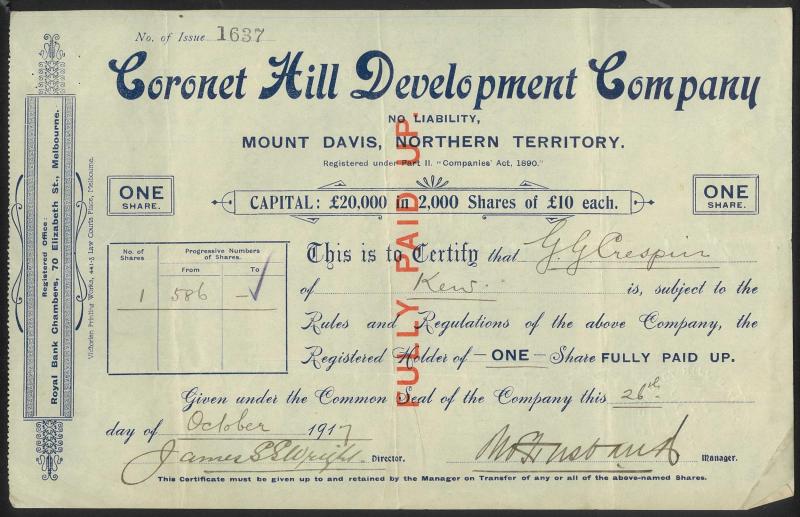 No. of Issue 1637
Coronet Hill Development Company
NO LIABILITY,
MOUNT DAVIS, NORTHERN TERRITORY.
Registered under Part II. "Companies' Act, 1890."
ONE
SHARE.
CAPITAL: £20,000 in 2,000 Shares of £10 each.
ONE
SHARE.
No. of
Shares
Progressive Numbers
of Shares.
From
To
1 586 –
This is to Certify that G. G. Crespin
of Kew. is, subject to the
Rules and Regulations of the above Company, the
Registered Holder of —ONE— Share FULLY PAID UP.
Given under the Common Seal of the Company this 26th
day of October 1917
James S Wright Director.
Manager.
This Certificate must be given up to and retained by the Manager on Transfer of any or all of the above-named Shares.
FULLY PAID UP.
Registered Office:
Royal Bank Chambers, 70 Elizabeth St., Melbourne.
Victorian Printing Works, 441-5 Law Courts Place, Melbourne.